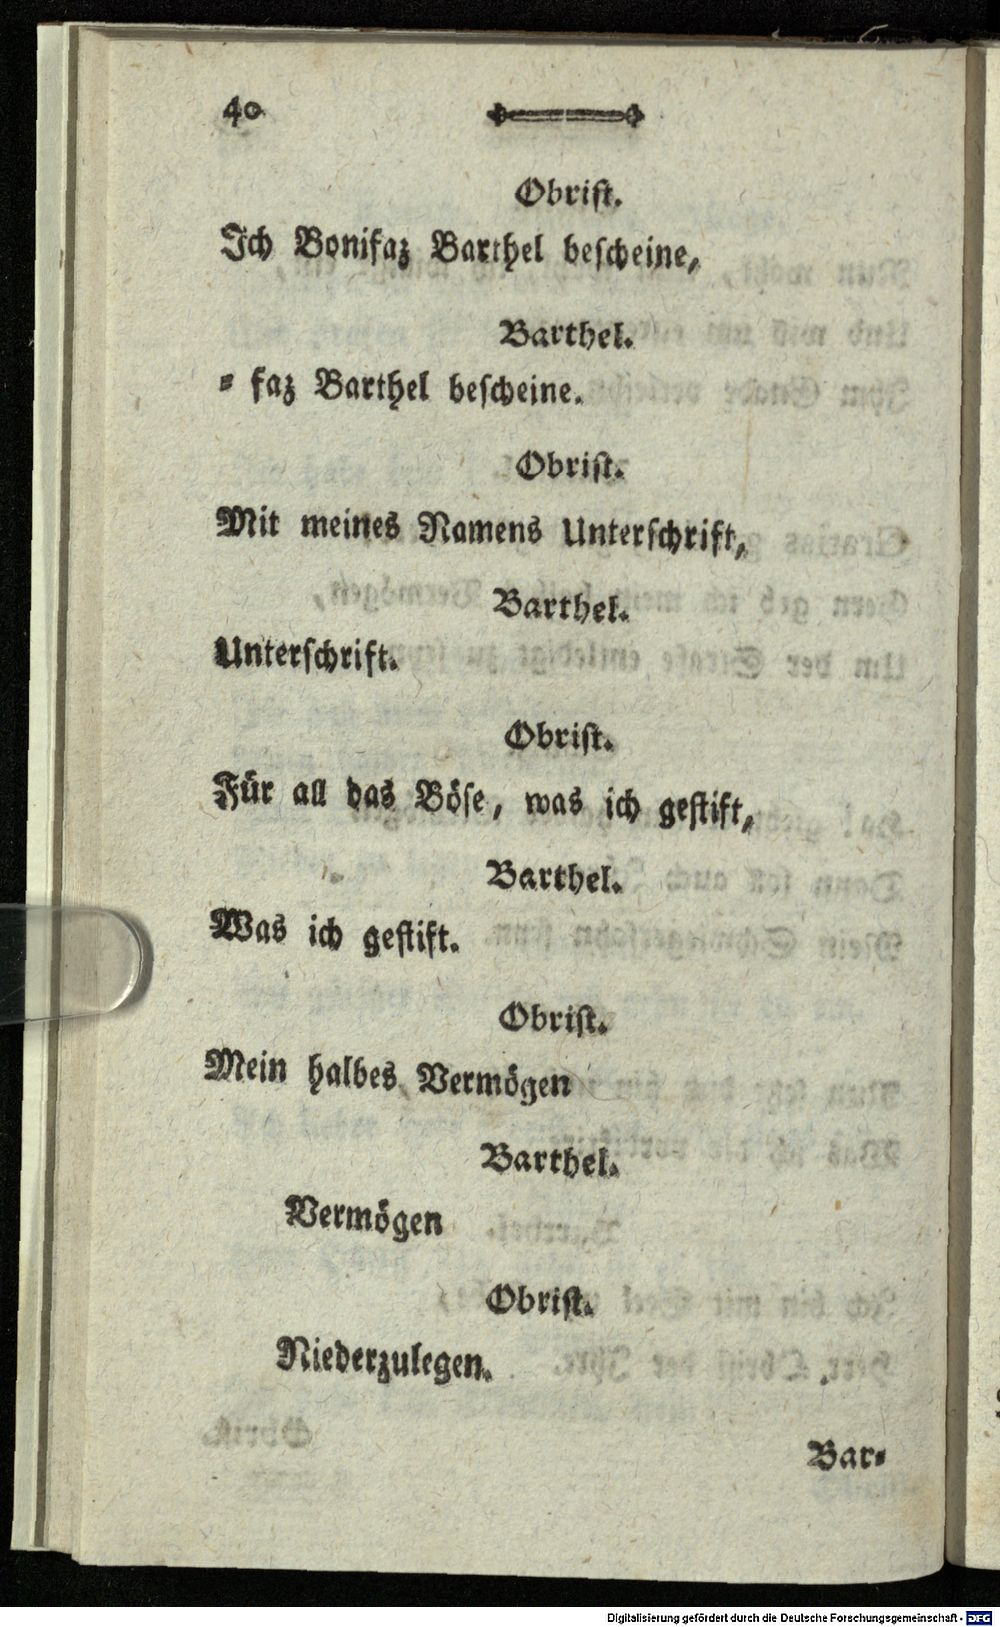 40
Obrist.
Ich Bonifaz Barthel bescheine,
Barthel.
= faz Barthel bescheine.
Obrist.
Mit meines Namens Unterschrift,
Barthel.
Unterschrift.
Obrist.
Für all das Böse, was ich gestift,
Barthel.
Was ich gestift.
Obrist.
Mein halbes Vermögen
Barthel.
Vermögen
Obrist.
Niederzulegen.
Bar=
Digitalisierung gefördert durch die Deutsche Forschungsgemeinschaft - DFG